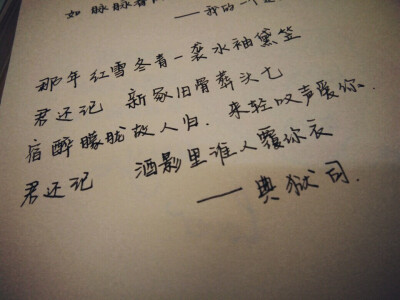 如脉脉
——我的一个
那年红雪冬青一袭水袖黛笠
君还记 新冢旧骨葬头七
宿醉朦胧故人归.来轻叹声爱你.
君还记 酒影里谁人覆你衣
——典狱司.